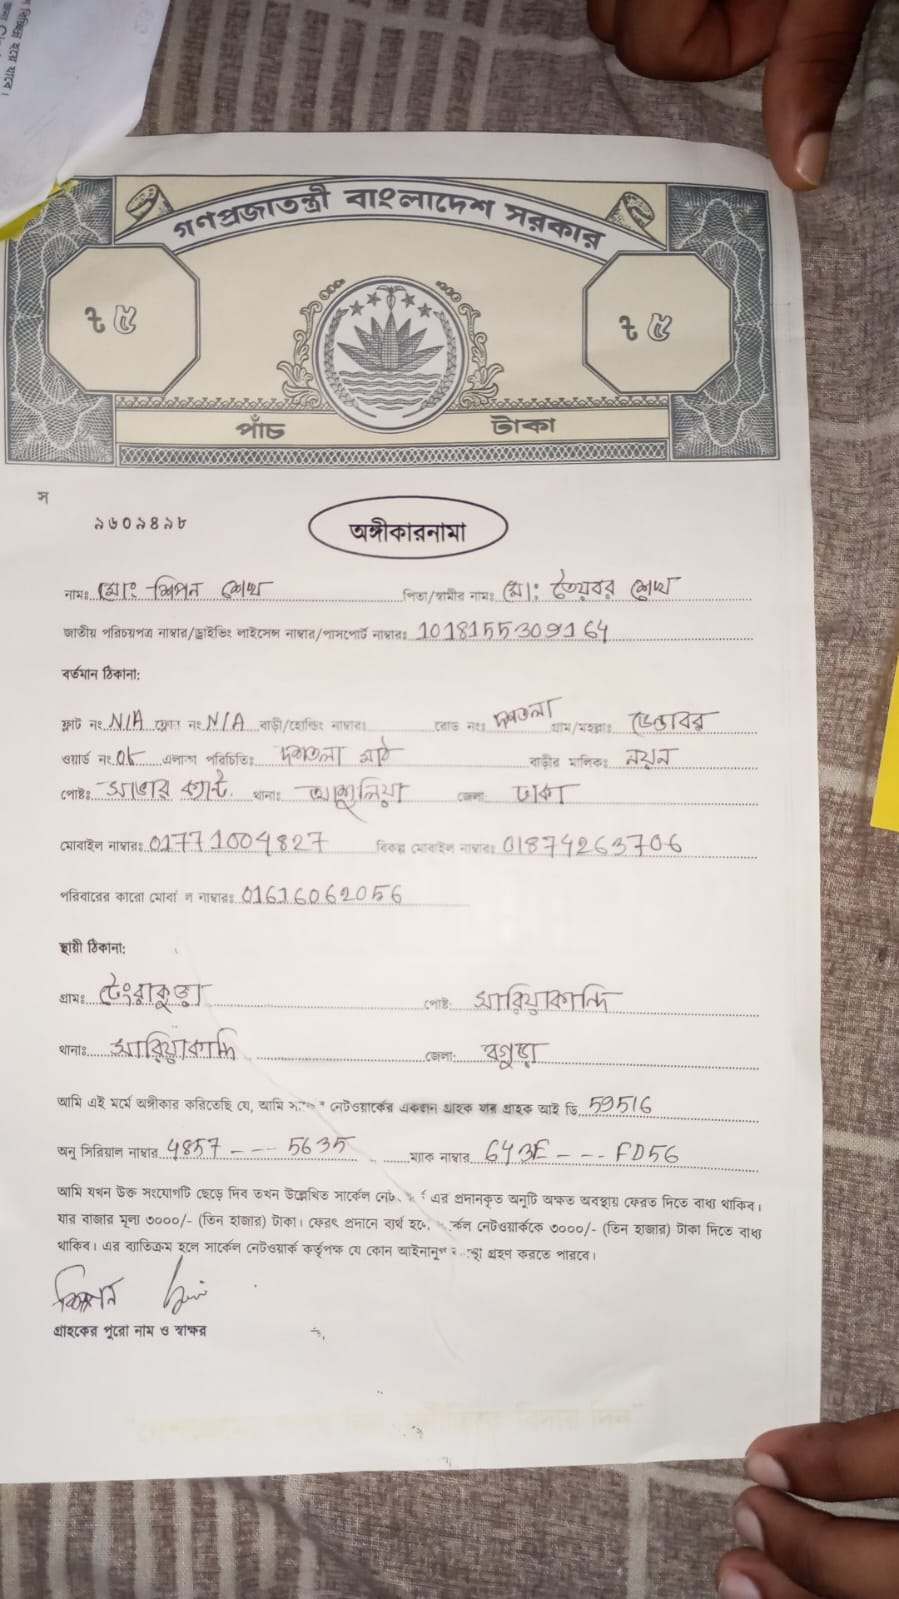 গণপ্রজাতন্ত্রী বাংলাদেশ সরকার
৳ ৫ ৳ ৫
পাঁচ টাকা
স
৯৬০৯৪৯৮
অঙ্গীকারনামা
নামঃ মোঃ শিপন শেখ পিতা/স্বামীর নামঃ মোঃ তৈয়বর শেখ
জাতীয় পরিচয়পত্র নাম্বার/ড্রাইভিং লাইসেন্স নাম্বার/পাসপোর্ট নাম্বারঃ 1018155309164
বর্তমান ঠিকানা:
ফ্লাট নং N/A ফ্লোর নং N/A বাড়ী/হোল্ডিং নাম্বারঃ রোড নংঃ দশতলা গ্রাম/মহল্লাঃ ডেন্ডাবর
ওয়ার্ড নং 05 এলাকা পরিচিতিঃ দশতলা মাঠ বাড়ীর মালিকঃ নয়ন
পোষ্টঃ সাভার ক্যান্ট. থানাঃ আশুলিয়া জেলা: ঢাকা
মোবাইল নাম্বারঃ 01771004827 বিকল্প মোবাইল নাম্বারঃ 01874263706
পরিবারের কারো মোবা ল নাম্বারঃ 01616062056
স্থায়ী ঠিকানা:
গ্রামঃ টেংরাকুড়া পোষ্ট: সারিয়াকান্দি
থানাঃ সারিয়াকান্দি জেলা: বগুড়া
আমি এই মর্মে অঙ্গীকার করিতেছি যে, আমি নেটওয়ার্কের একজন গ্রাহক যার গ্রাহক আই ডি 59516
অনু সিরিয়াল নাম্বার 4857 --- 5635 ম্যাক নাম্বার 643E --- FD56
আমি যখন উক্ত সংযোগটি ছেড়ে দিব তখন উল্লেখিত সার্কেল নেট এর প্রদানকৃত অনুটি অক্ষত অবস্থায় ফেরত দিতে বাধ্য থাকিব।
যার বাজার মূল্য ৩০০০/- (তিন হাজার) টাকা। ফেরৎ প্রদানে ব্যর্থ হলে, র্কেল নেটওয়ার্ককে ৩০০০/- (তিন হাজার) টাকা দিতে বাধ্য
থাকিব। এর ব্যতিক্রম হলে সার্কেল নেটওয়ার্ক কর্তৃপক্ষ যে কোন আইনানুগ গ্রহণ করতে পারবে।
শিপন
গ্রাহকের পুরো নাম ও স্বাক্ষর